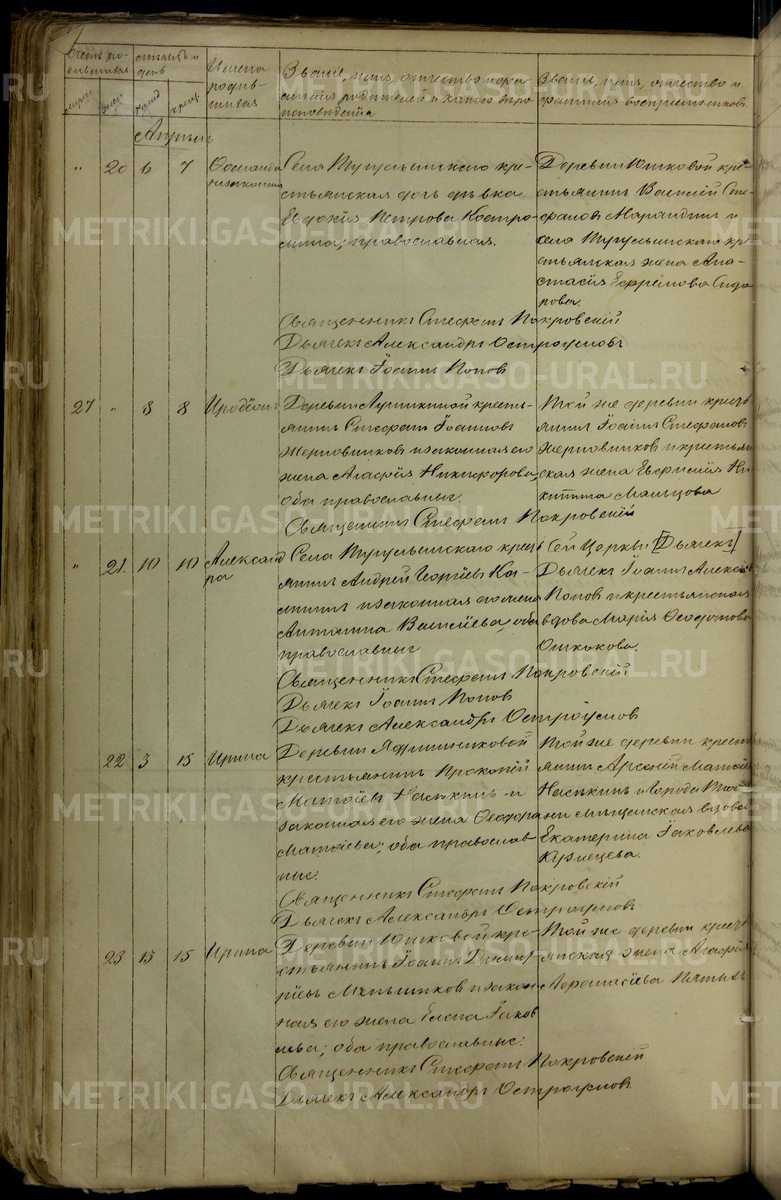 Счетъ ро-
дившихся
мѣсяцъ и
день
Имена
родив-
шихся
Званіе, имя, отчество и фа-
милія родителей и какого вѣро-
исповѣданія
Званіе, имя, отчество и
фамилія воспріемниковъ
муж.
жен.
рожд.
крещ.
Апрѣль
" 20 6 7
незаконная
Села Тугулымскаго кре-
стьянская дочь дѣвка
Евдокія Петрова Костро-
мина; православная.
Деревни Юшковой кре-
стьянинъ Василій Сте-
фановъ и
села Тугулымскаго кре-
стьянская жена Ана-
стасія Ефремова Сидо-
рова.
Священникъ Стефанъ Покровскій
Дьячекъ Александръ Остроумовъ
Дьячекъ Іоаннъ Поповъ
27 " 8 8 Иродіонъ
Деревни кресть-
янинъ Стефанъ Іоанновъ
Жерновниковъ и законная его
жена Агафія Никифорова,
оба православные.
Той же деревни кресть-
янинъ Іоаннъ Стефановъ
Жерновниковъ и крестьян-
ская жена Евфимія Ни-
китина Мальцова
Священникъ Стефанъ Покровскій
" 21. 10 10 Александ
ра
Села Тугулымскаго крест
янинъ Андрей Георгіевъ
и законная его жена
Антонина Васильева, оба
православные
Сей Церкви [Дьячекъ]
Дьячекъ Іоаннъ Алексѣе
Поповъ и крестьянская
вдова Марія Ѳеодотова
Священникъ Стефанъ Покровскій
Дьячекъ Іоаннъ Поповъ
Дьячекъ Александръ Остроумовъ
22 3 15 Ирина
Деревни
крестьянинъ Прокопій
Матѳіевъ и
законная его жена Ѳеодора
Матѳіева; оба православ-
ные.
Той же деревни крест
янинъ Арсеній Матѳіевъ
и города
мѣщанская вдова
Екатерина Іаковлева
Кузнецова.
Священникъ Стефанъ Покровскій
Дьячекъ Александръ Остроумовъ
23 13 15 Ирина
Деревни Юшковой кре-
стьянинъ Іоаннъ Димит-
ріевъ Мельниковъ и закон
ная его жена Елена Іаков
лева; оба православные.
Той же деревни крест
янская жена Агафія
Аѳанасіева
Священникъ Стефанъ Покровскій
Дьячекъ Александръ Остроумовъ
METRIKI.GASO-URAL.RU